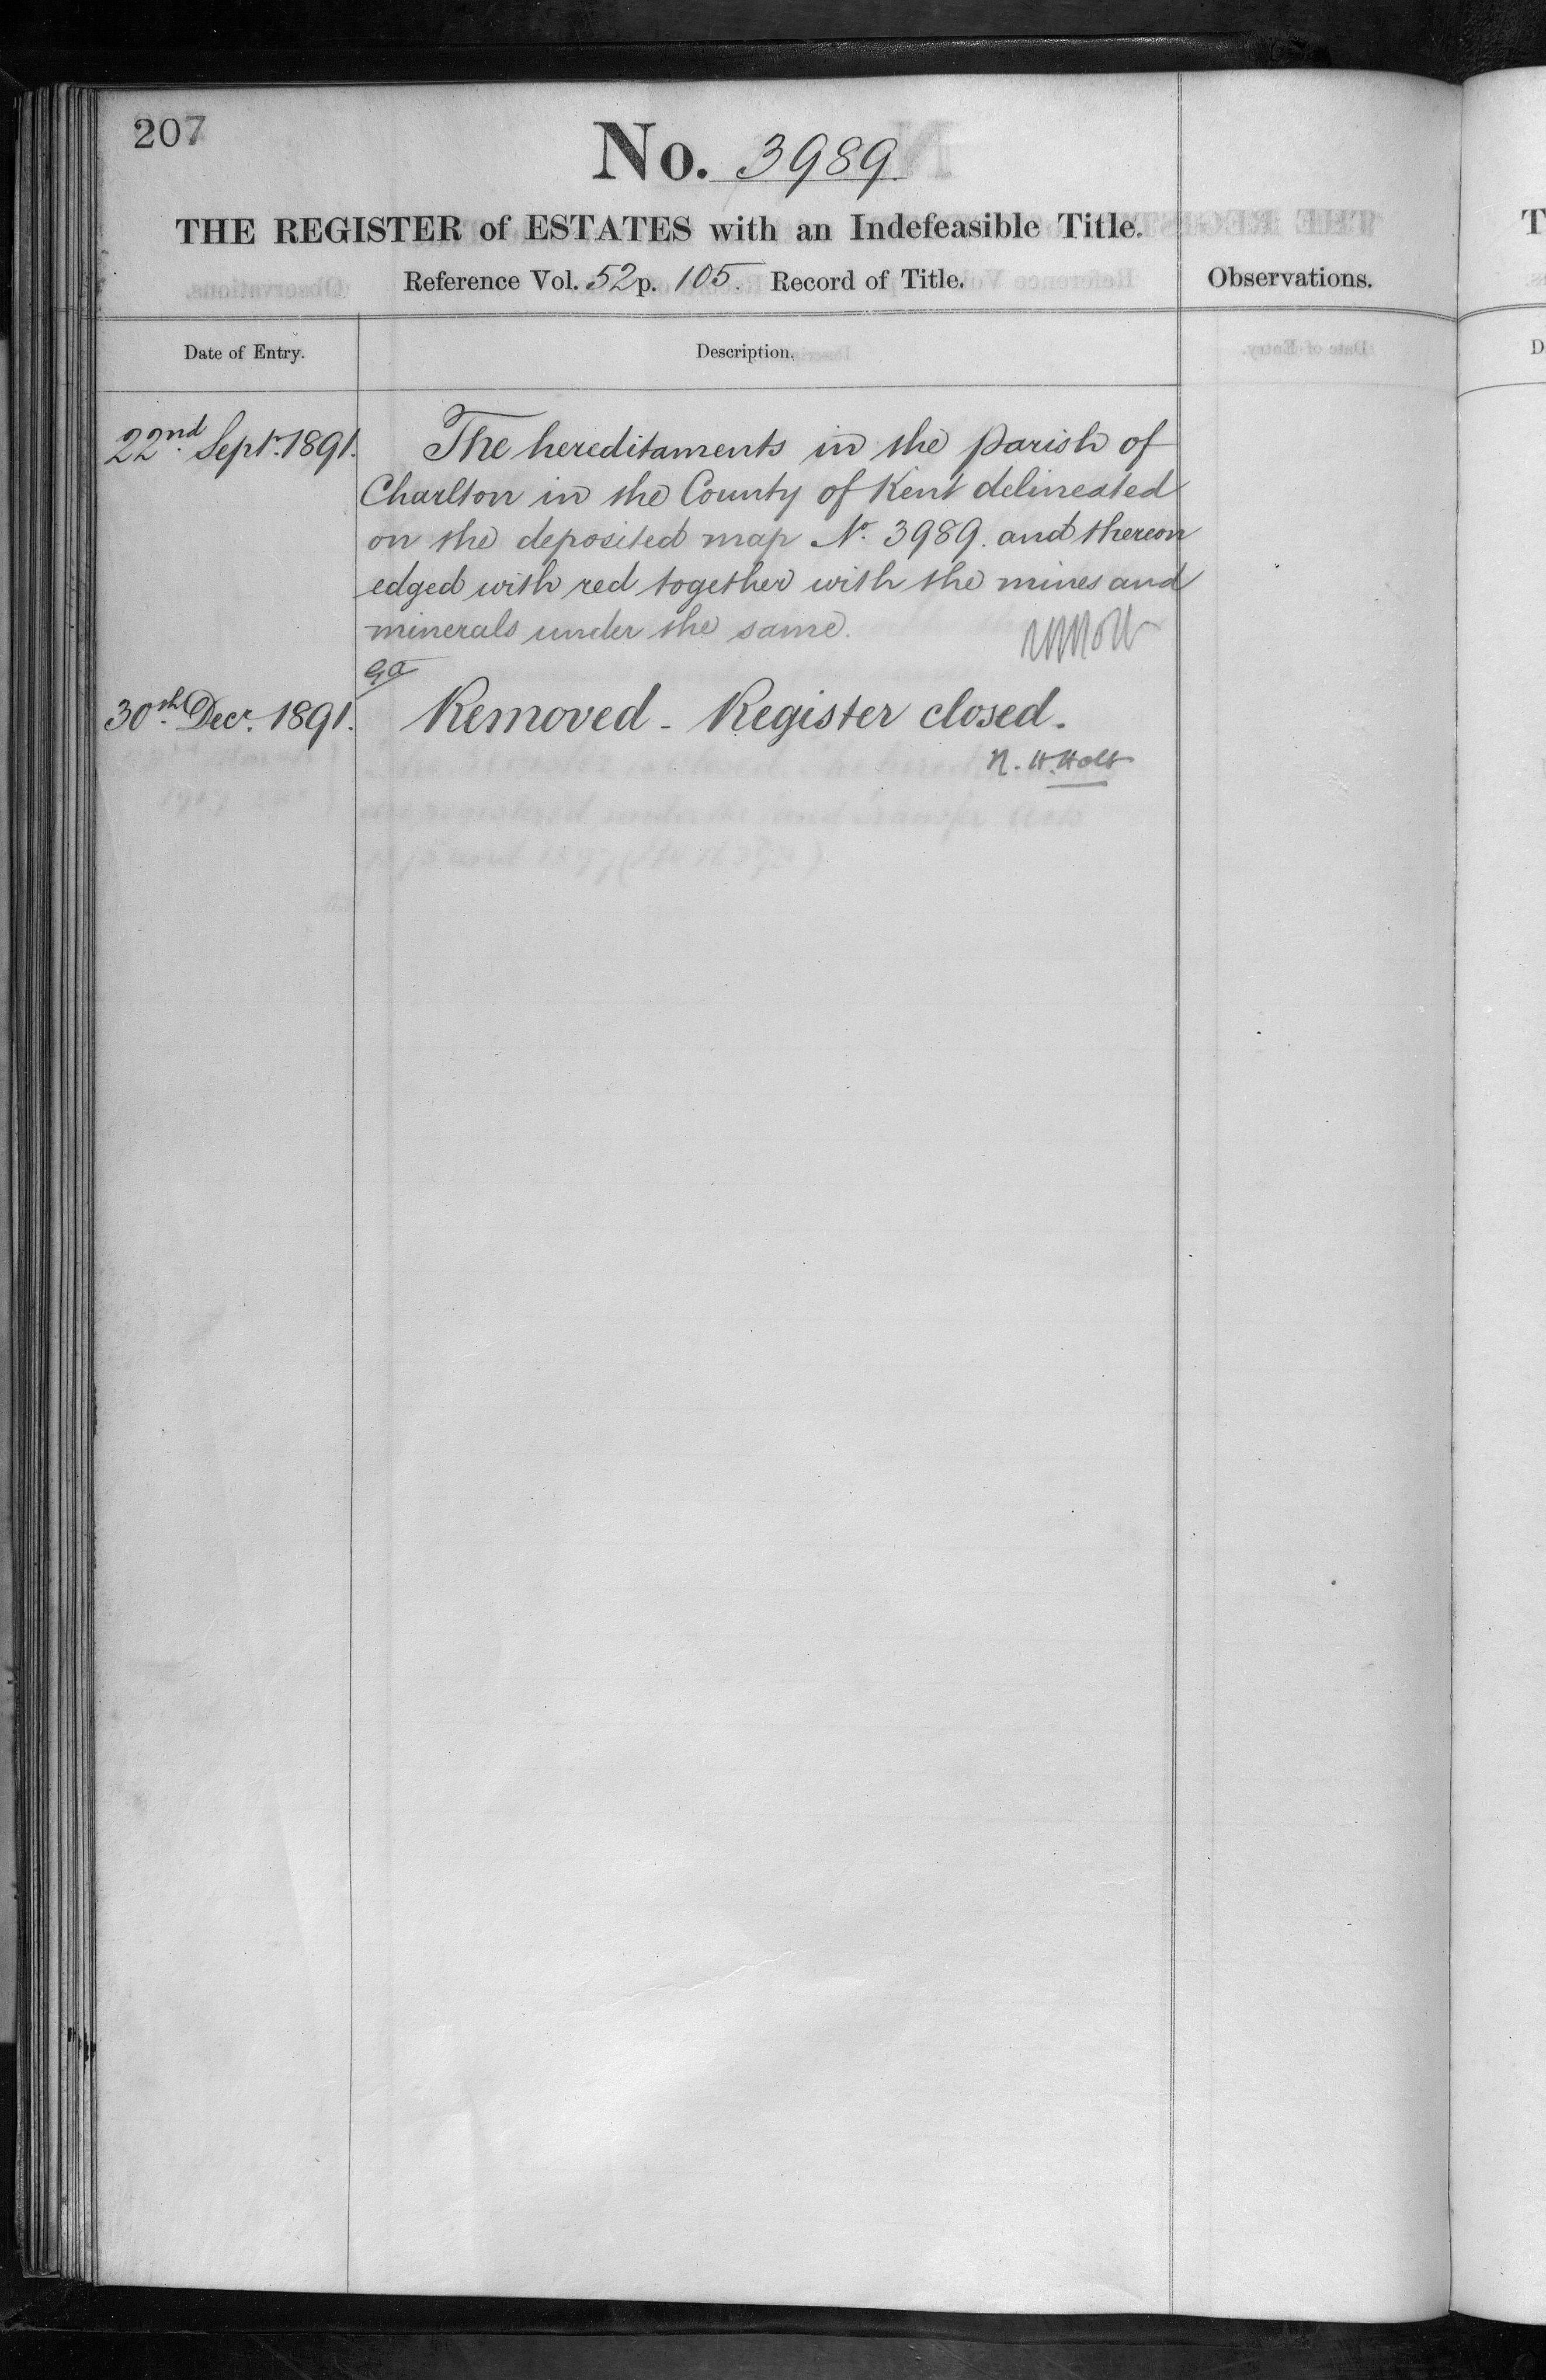 207
No. 3989
THE REGISTER of ESTATES with an Indefeasible Title.
Reference Vol. 52 p. 105. Record of Title.
Observations.
Date of Entry.
Description.
22nd Septr. 1891.
The hereditaments in the parish of
Charlton in the County of Kent delineated
on the deposited map No. 3989. and thereon
edged with red together with the mines and
minerals under the same.
30th Decr. 1891.
Removed - Register closed.
N. W. Holt